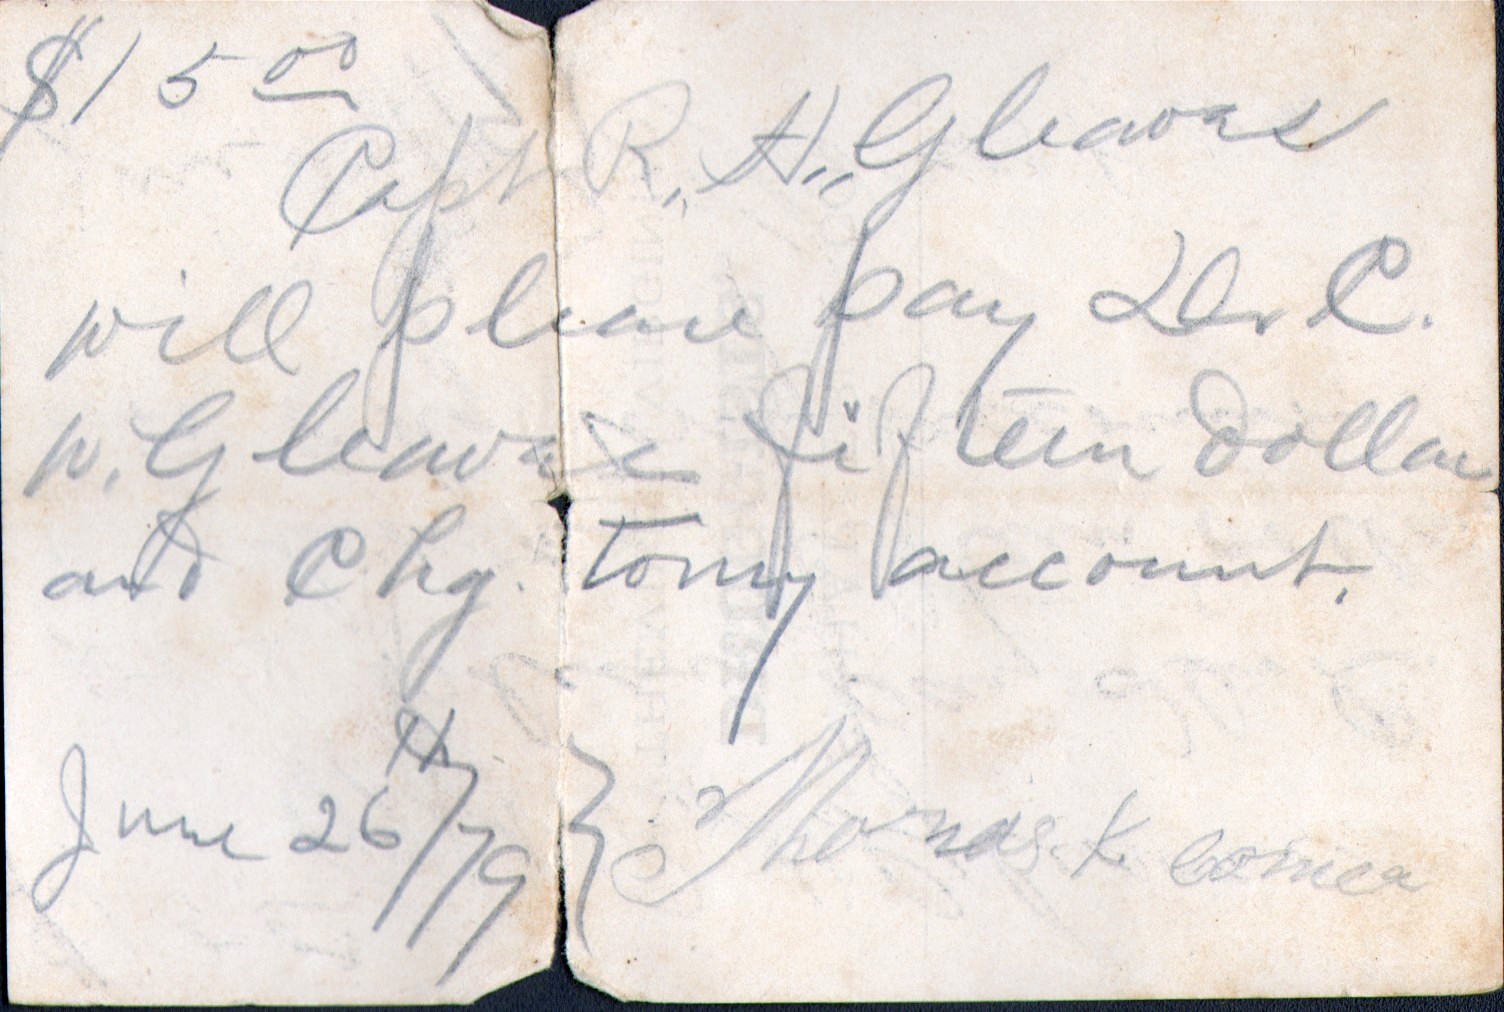 $15 00
Capt R. H. Gleaves
will please pay Dr C.
W. Gleaves fifteen Dollar
and Chg. to my account.
June 26th/79 } Thomas K